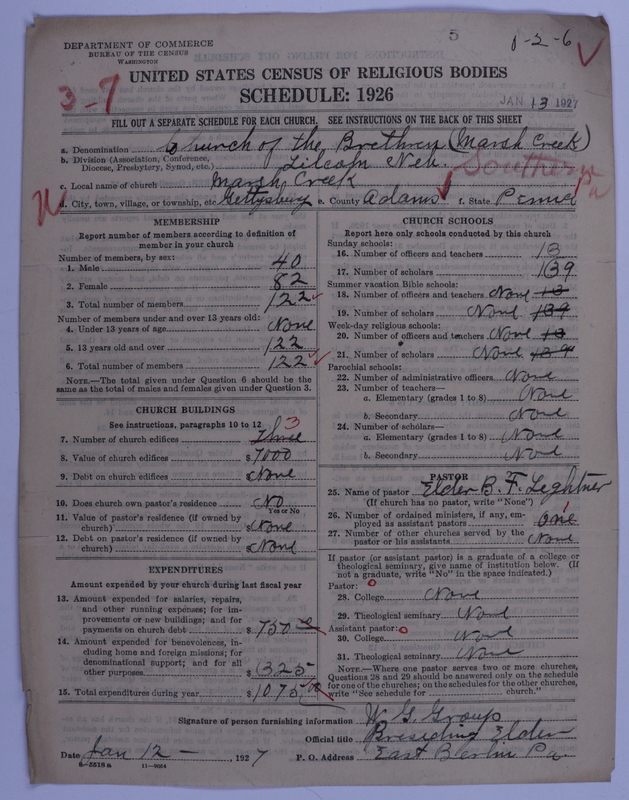 DEPARTMENT OF COMMERCE
BUREAU OF THE CENSUS
WASHINGTON
5
1-2-6
UNITED STATES CENSUS OF RELIGIOUS BODIES
3-7
SCHEDULE: 1926
JAN 13 1927
FILL OUT A SEPARATE SCHEDULE FOR EACH CHURCH. SEE INSTRUCTIONS ON THE BACK OF THIS SHEET
a. Denomination Church of the Brethren (Marsh Creek)
b. Division (Association, Conference, Diocese, Presbytery, Synod, etc.) Lilcoln Neb. Southern Pa
c. Local name of church Marsh Creek
d. City, town, village, or township, etc. Gettysburg e. County Adams f. State Penna
MEMBERSHIP
Report number of members according to definition of
member in your church
Number of members, by sex:
1. Male 40
2. Female 82
3. Total number of members 122
Number of members under and over 13 years old:
4. Under 13 years of age None
5. 13 years old and over 122
6. Total number of members 122
NOTE.—The total given under Question 6 should be the
same as the total of males and females given under Question 3.
CHURCH BUILDINGS
See instructions, paragraphs 10 to 12
7. Number of church edifices Three 3
8. Value of church edifices $ 7000
9. Debt on church edifices $ None
10. Does church own pastor's residence No
Yes or No
11. Value of pastor's residence (if owned by
church) $ None
12. Debt on pastor's residence (if owned by
church) $ None
EXPENDITURES
Amount expended by your church during last fiscal year
13. Amount expended for salaries, repairs,
and other running expenses; for im-
provements or new buildings; and for
payments on church debt $ 750
14. Amount expended for benevolences, in-
cluding home and foreign missions; for
denominational support; and for all
other purposes $ 325
15. Total expenditures during year $ 1075
CHURCH SCHOOLS
Report here only schools conducted by this church
Sunday schools:
16. Number of officers and teachers 13
17. Number of scholars 139
Summer vacation Bible schools:
18. Number of officers and teachers None 13
19. Number of scholars None 139
Week-day religious schools:
20. Number of officers and teachers None 13
21. Number of scholars None 139
Parochial schools:
22. Number of administrative officers None
23. Number of teachers—
a. Elementary (grades 1 to 8) None
b. Secondary None
24. Number of scholars—
a. Elementary (grades 1 to 8) None
b. Secondary None
PASTOR
25. Name of pastor Elder B. F. Lightner
(If church has no pastor, write "None")
26. Number of ordained ministers, if any, em-
ployed as assistant pastors One 1
27. Number of other churches served by the
pastor or his assistants None
If pastor (or assistant pastor) is a graduate of a college or
theological seminary, give name of institution below. (If
not a graduate, write "No" in the space indicated.)
Pastor:
28. College None
29. Theological seminary None
Assistant pastor:
30. College None
31. Theological seminary None
NOTE.—Where one pastor serves two or more churches,
Questions 28 and 29 should be answered only on the schedule
for one of the churches; on the schedules for the other churches,
write "See schedule for church."
Signature of person furnishing information W. G. Group
Official title Presiding Elder
Date Jan 12 - 1927 P. O. Address East Berlin Pa
8-5518a 11-9224